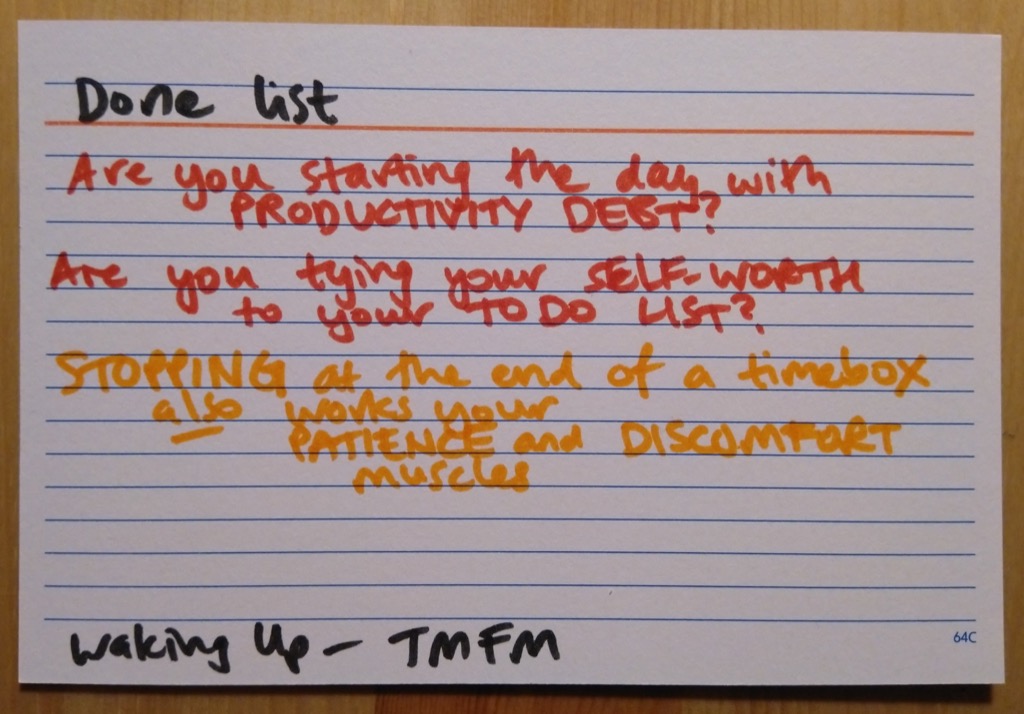 Done list
Are you starting the day with
PRODUCTIVITY DEBT?
Are you tying your SELF-WORTH
to your TO DO LIST?
STOPPING at the end of a timebox
also works your
PATIENCE and DISCOMFORT
muscles
Waking Up - TMFM
64C